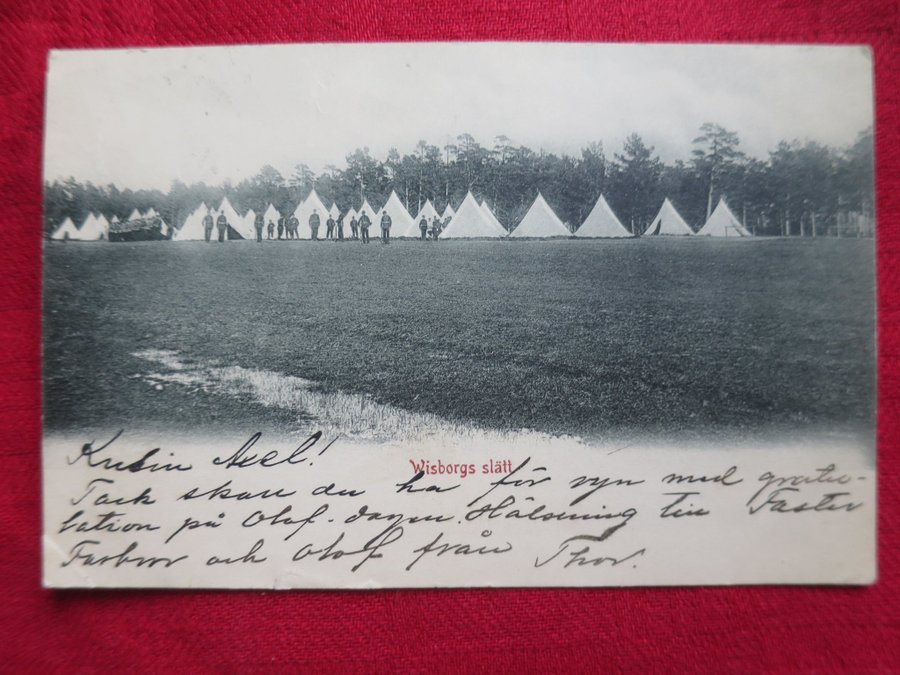 Kusin Axel!
Wisborgs slätt
Tack skall du ha för vyn med gratu-
lation på Olof-dagen. Hälsning till Faster
Farbror och Olof från Thor.